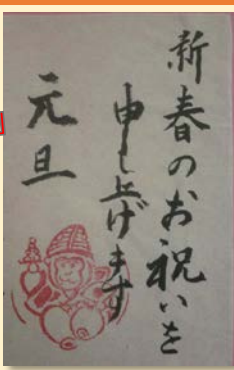 新春のお祝いを
申し上げます
元旦